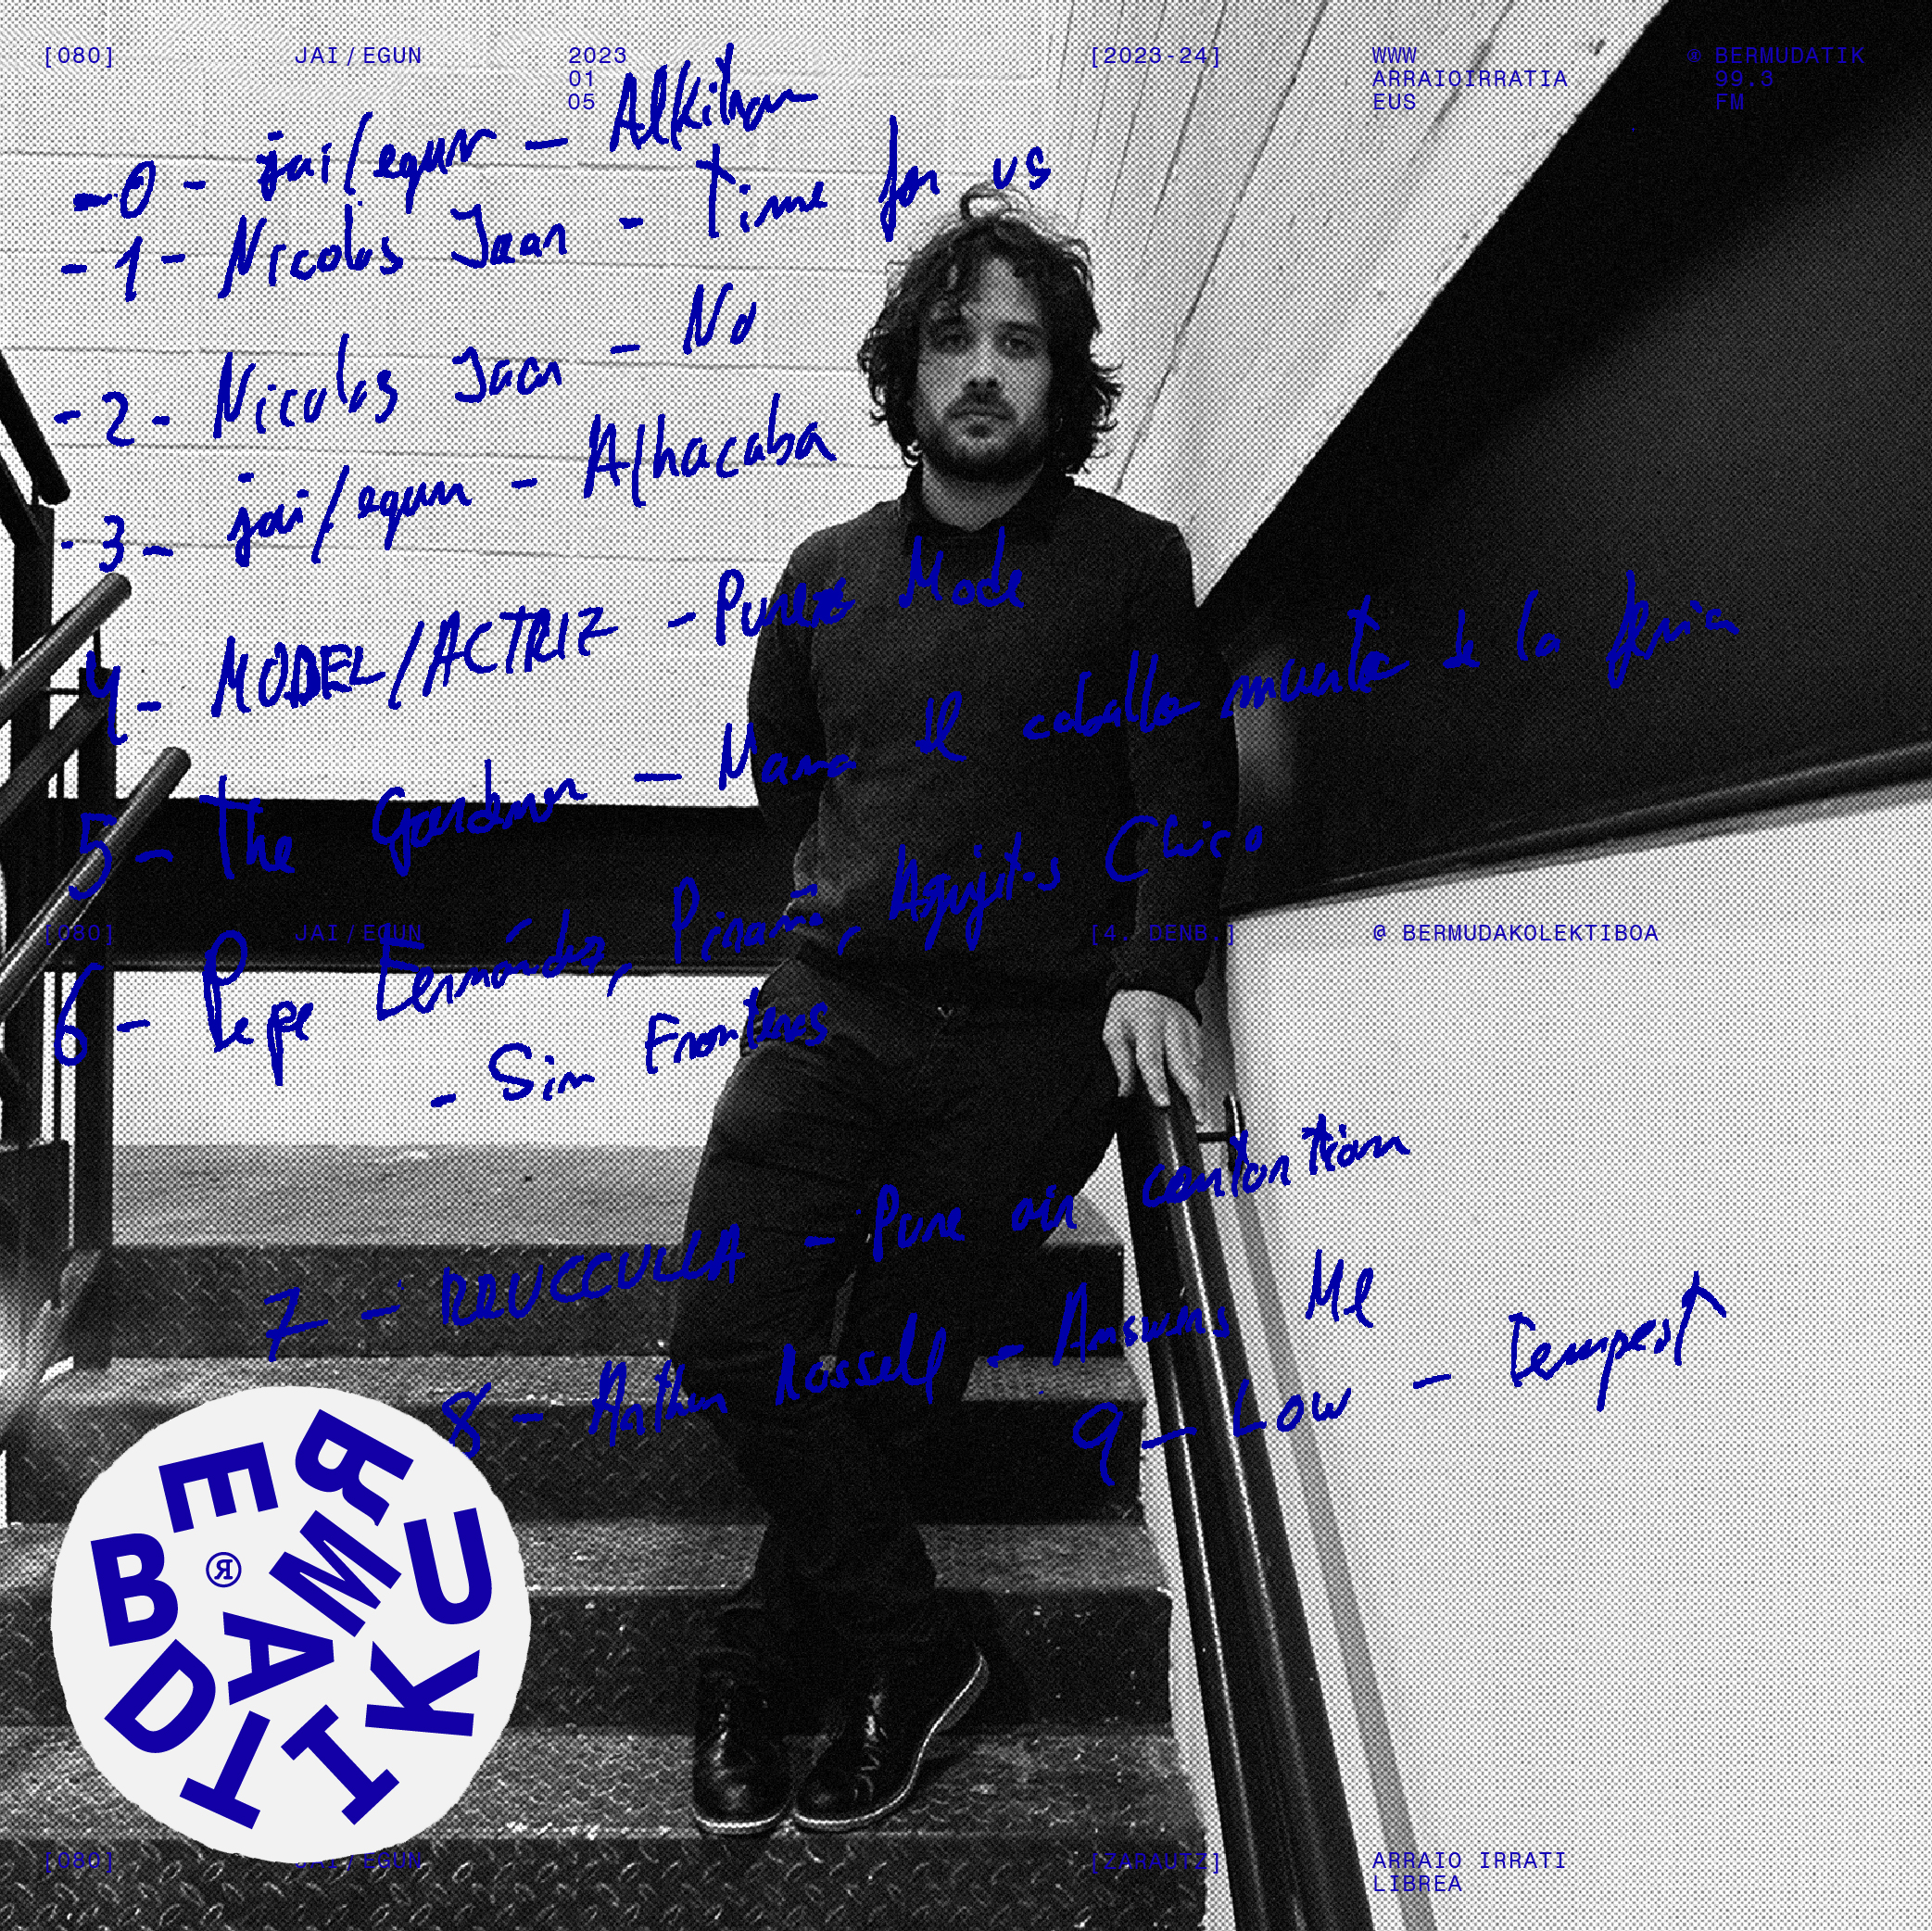 [080] JAI/EGUN 2023 [2023-24] WWW ® BERMUDATIK
01 ARRAIOIRRATIA 99.3
05 EUS FM
-0- jai/egun - Alkilran
-1- Nicolas Jaar - Time for us
-2- Nicolas Jaar - No
-3- jai/egun - Alhacaba
4- MODEL/ACTRIZ - Pure Mode
5- The Gardener - Mama El caballo muerto de la feria
[080] JAI/EGUN [4. DENB.] @ BERMUDAKOLEKTIBOA
6- Pepe Fernández, Piraña, Agujetas Chico
- Sin Fronteras
7- RRUCCULLA - Pure air contortion
8- Arthur Russell - Answers Me
9- Low - Tempest
BERMUDATIK
®
[080] JAI/EGUN [ZARAUTZ] ARRAIO IRRATI
LIBREA